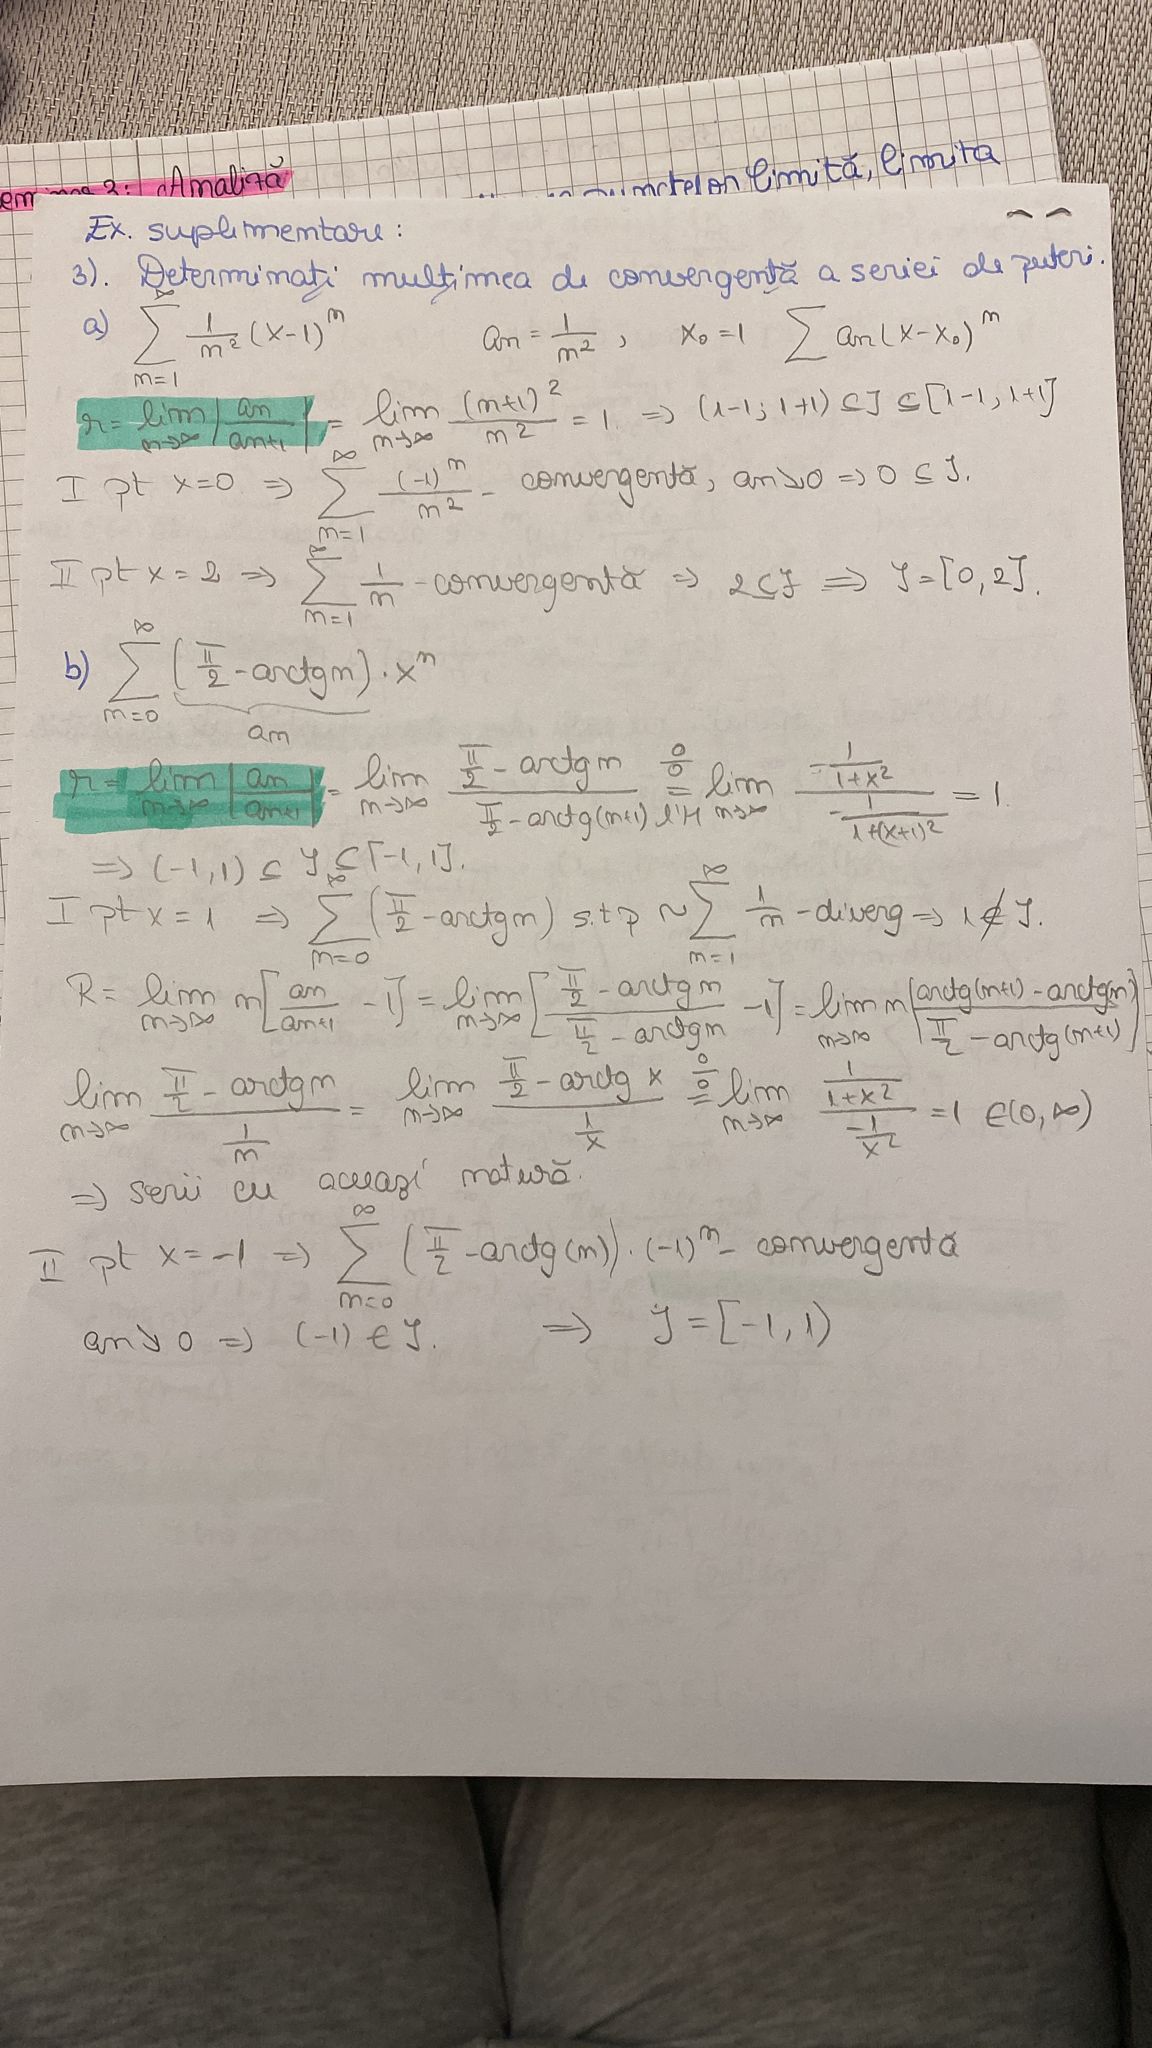 3: Analiză
punctelor limită, limita
Ex. suplimentare:
3). Determinați mulțimea de convergență a seriei de puteri.
a) ∑_{n=1}^{∞} 1/n² (x-1)^n   an = 1/n², x₀=1 ∑ an(x-x₀)^n
r = lim_{n→∞} |an/an+1| = lim_{n→∞} (n+1)²/n² = 1. => (1-1; 1+1) ⊆ J ⊆ [1-1, 1+1]
I pt x=0 => ∑_{n=1}^{∞} (-1)^n/n² - convergentă, an↘0 => 0 ⊆ J.
II pt x=2 => ∑_{n=1}^{∞} 1/n - convergentă => 2 ⊆ J => J=[0,2].
b) ∑_{n=0}^{∞} (π/2 - arctg n) · x^n
an
r = lim_{n→∞} |an/an+1| = lim_{n→∞} (π/2 - arctg n)/(π/2 - arctg(n+1)) =^{0/0}_{l'H} lim_{n→∞} (-1/(1+x²))/(-1/(1+(x+1)²)) = 1.
=> (-1,1) ⊆ J ⊆ [-1,1].
I pt x=1 => ∑_{n=0}^{∞} (π/2 - arctg n) s.t.p ~ ∑_{n=1}^{∞} 1/n - diverg => 1 ∉ J.
R = lim_{n→∞} n[an/an+1 - 1] = lim_{n→∞} [(π/2 - arctg n)/(π/2 - arctg n) - 1] = lim_{n→∞} n[(arctg(n+1) - arctg n)/(π/2 - arctg(n+1))]
lim_{n→∞} (π/2 - arctg n)/(1/n) = lim_{n→∞} (π/2 - arctg x)/(1/x) =^{0/0} lim_{n→∞} (1/(1+x²))/(-1/x²) = 1 ∈ (0,∞)
=> serii cu aceeași natură.
II pt x=-1 => ∑_{n=0}^{∞} (π/2 - arctg(n)) · (-1)^n - convergentă
an↘0 => (-1) ∈ J.   => J=[-1,1)